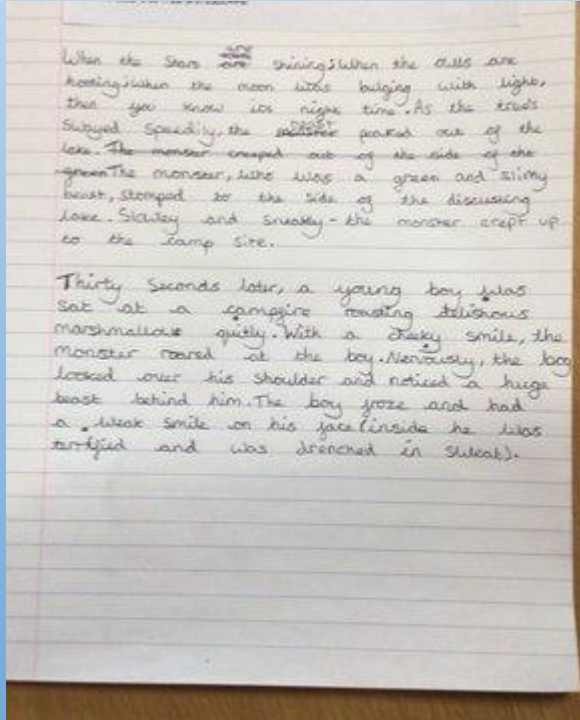 When the stars are shining; when the owls are
hooting; when the moon was bulging with light,
then you know its night time. As the trees
swayed speedily, the beast peaked out of the
lake. The monster creeped out of the side of the
green The monster, who was a green and slimy
beast, stomped to the side of the discusting
lake. Slowley and sneakey - the monster crept up
to the camp site.
Thirty Seconds later, a young boy was
sat at a campfire roasting delishous
marshmallows quitly. With a cheeky smile, the
monster roared at the boy. Nervously, the boy
looked over his shoulder and noticed a huge
beast behind him. The boy froze and had
a weak smile on his face (inside he was
terrified and was drenched in sweat).